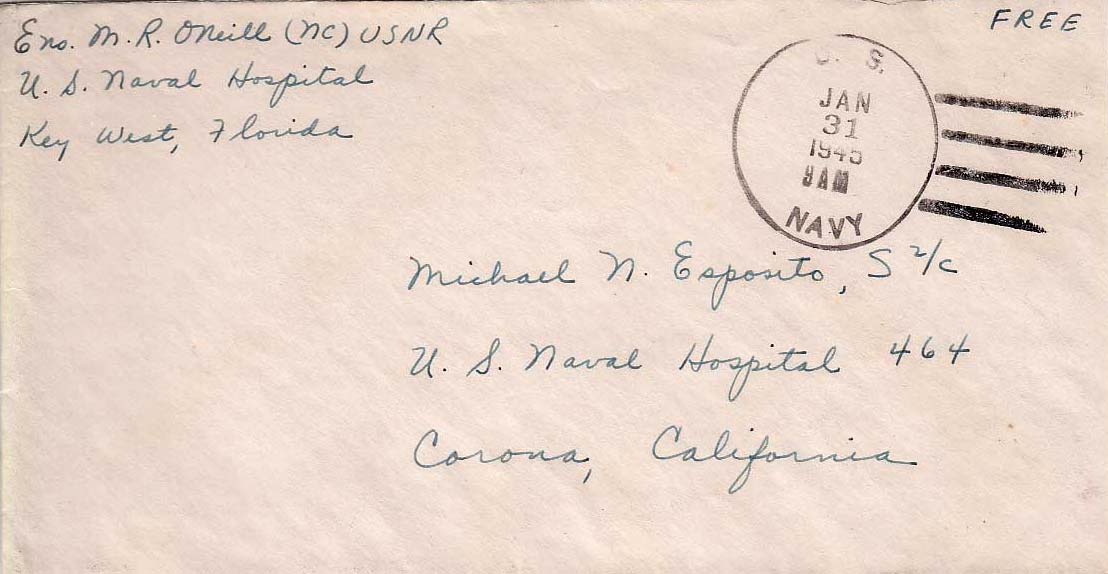 Ens. M. R. ONeill (NC) USNR
U. S. Naval Hospital
Key West, Florida
FREE
U. S.
JAN
31
1945
9 AM
NAVY
Michael N. Esposito, S 2/c
U. S. Naval Hospital 464
Corona, California